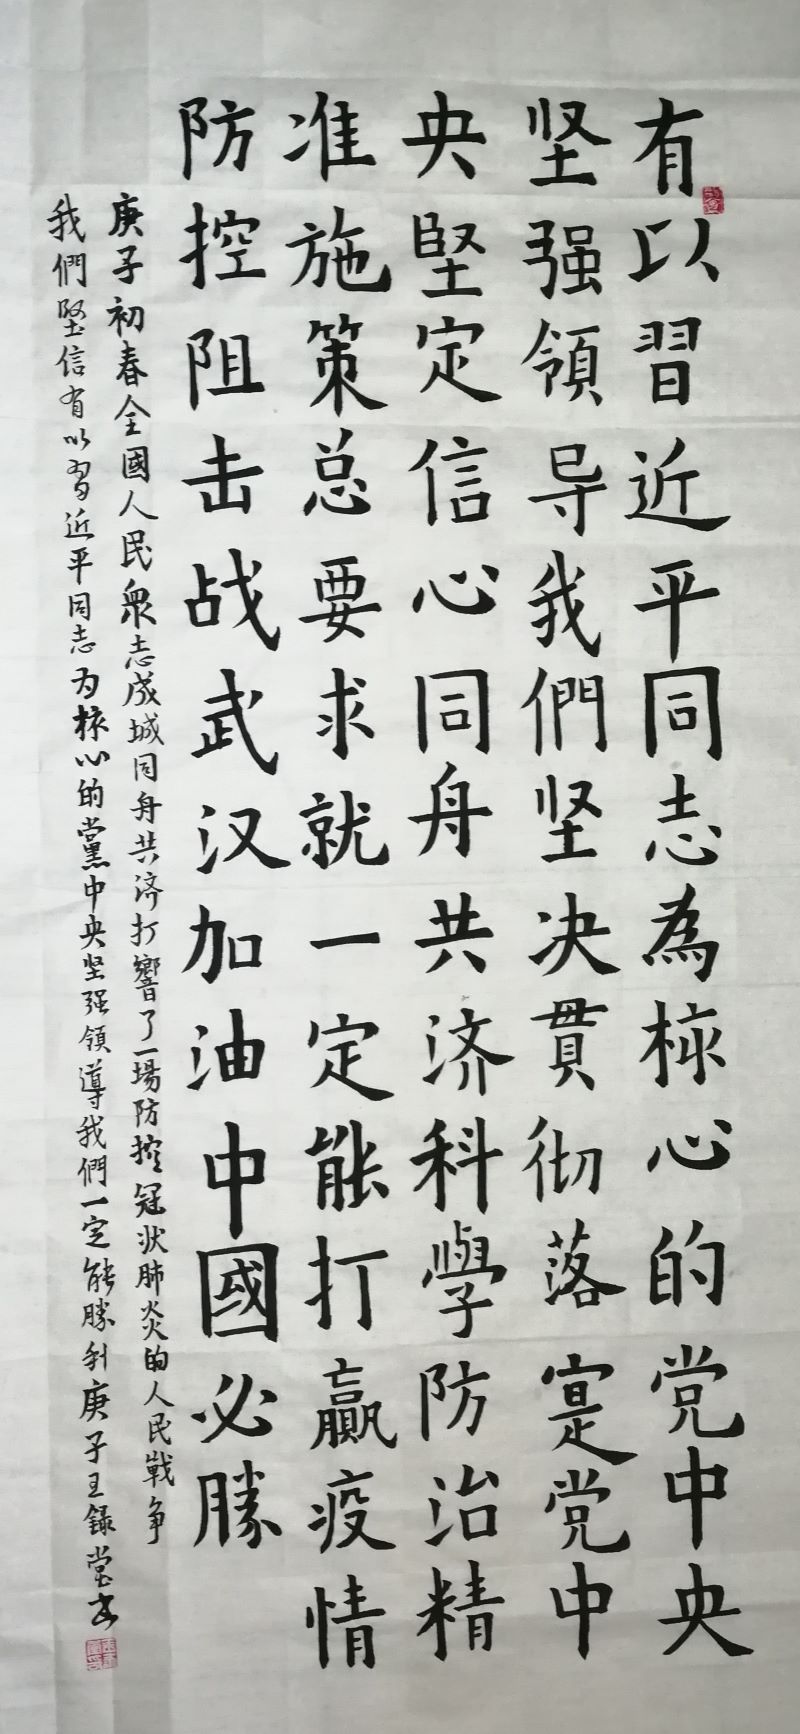 有以習近平同志為核心的党中央
坚强領导我們坚决贯彻落寔党中
央堅定信心同舟共济科學防治精
准施策总要求就一定能打贏疫情
防控阻击战武汉加油中國必勝
庚子初春全國人民衆志成城同舟共济打響了一場防控冠状肺炎的人民戰争
我們坚信有以習近平同志为核心的黨中央坚强領導我們一定能勝利庚子王錄堂书